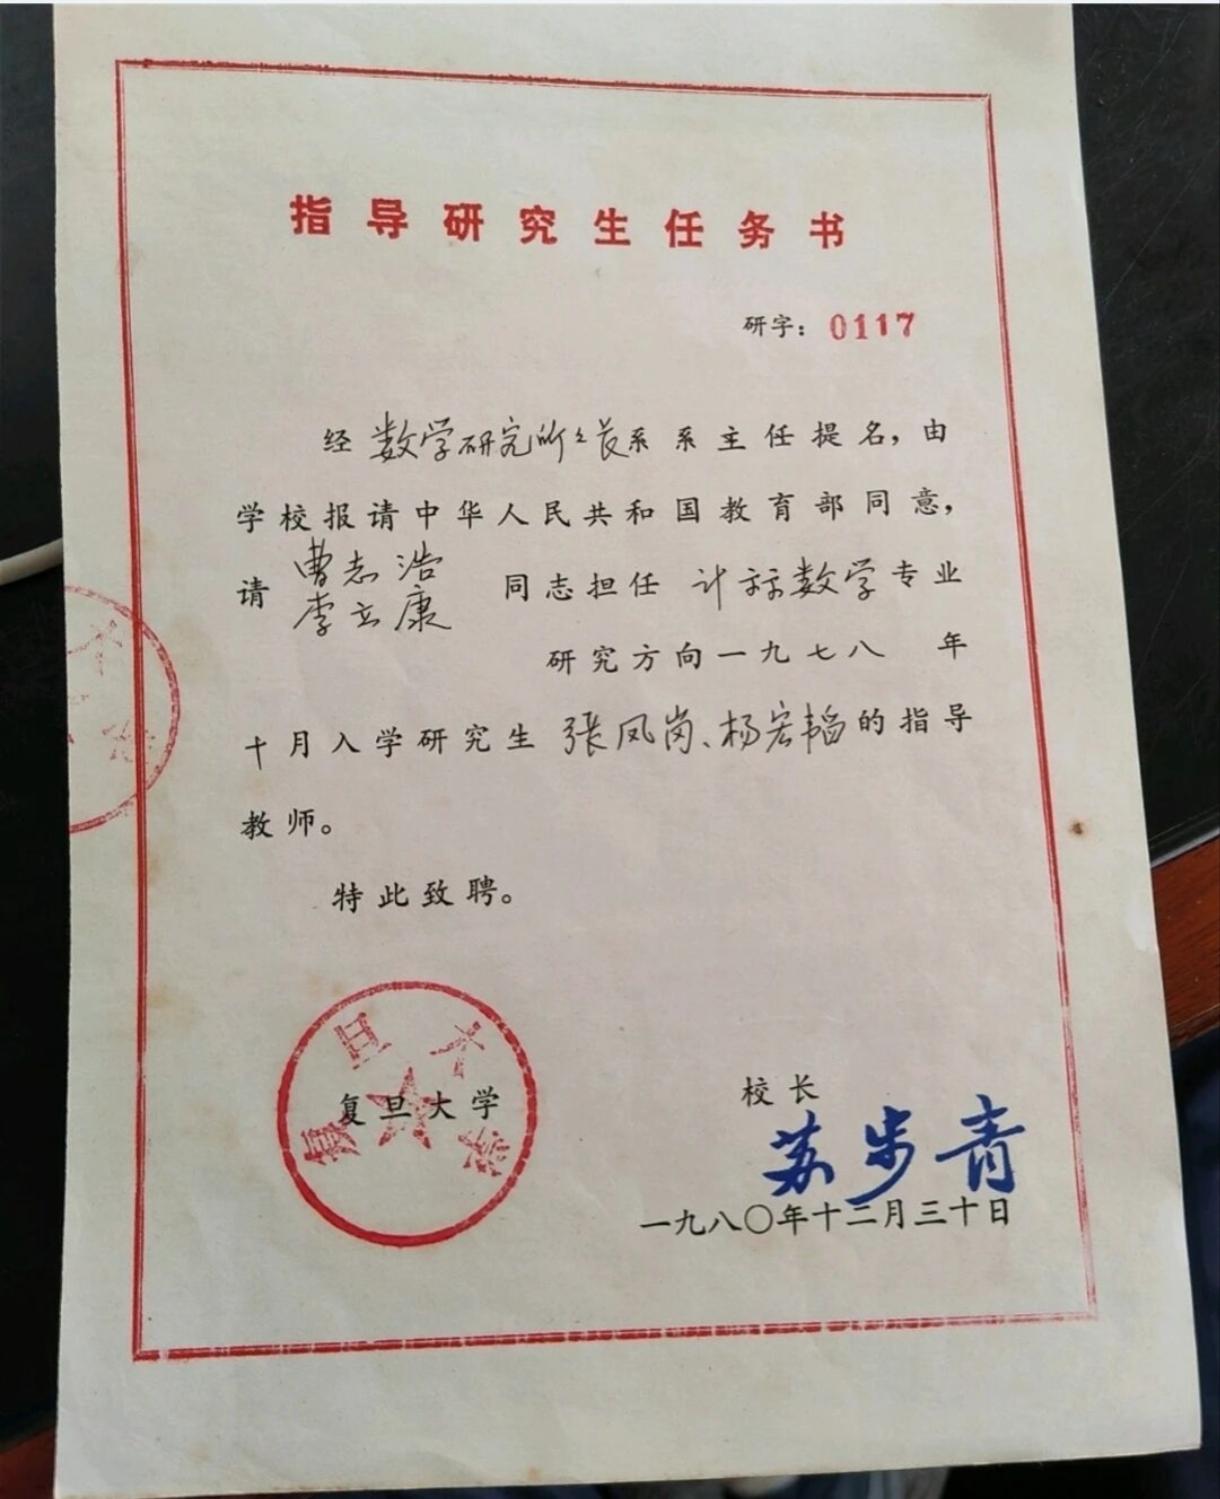 指导研究生任务书
研字：0117
经数学研究所所长系系主任提名，由
学校报请中华人民共和国教育部同意，
请曹志浩 李立康同志担任计算数学专业
研究方向一九七八年
十月入学研究生张凤岗、杨宏韬的指导
教师。
特此致聘。
复旦大学
复旦大学
校长
苏步青
一九八〇年十二月三十日